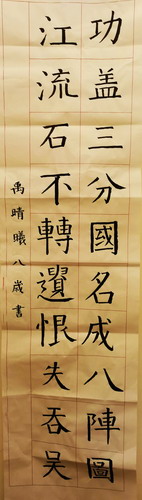 功盖三分國名成八陣圖
江流石不轉遺恨失吞吴
禹晴曦八歲書